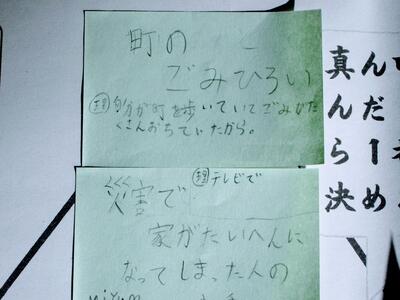 町の
ごみひろい
理 自分が町を歩いていてごみがた
くさんおちていたから。
災害で
理 テレビで
家がたいへんに
なってしまった人の
真ん
んだ
ら1
決め